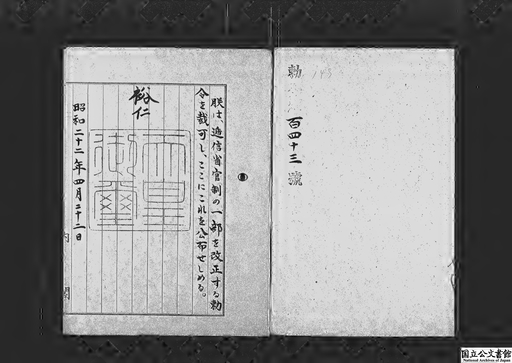 勅
百四十三
號
朕は、逓信省官制の一部を改正する勅
令を裁可し、ここにこれを公布せしめる。
裕仁
天皇御璽
昭和二十二年四月二十二日
内閣
国立公文書館
National Archives of Japan